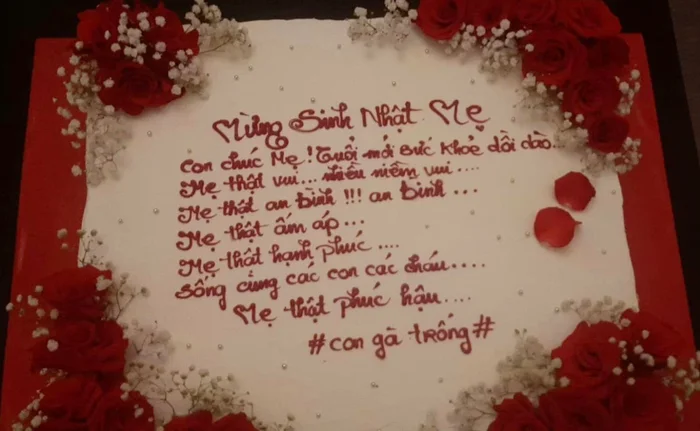 Mừng Sinh Nhật Mẹ
Con chúc Mẹ! Tuổi mới sức khỏe dồi dào...
Mẹ thật vui... nhiều niềm vui....
Mẹ thật an bình!!! an bình...
Mẹ thật ấm áp...
Mẹ thật hạnh phúc....
Sống cùng các con các cháu....
Mẹ thật phúc hậu....
#con gà trống#